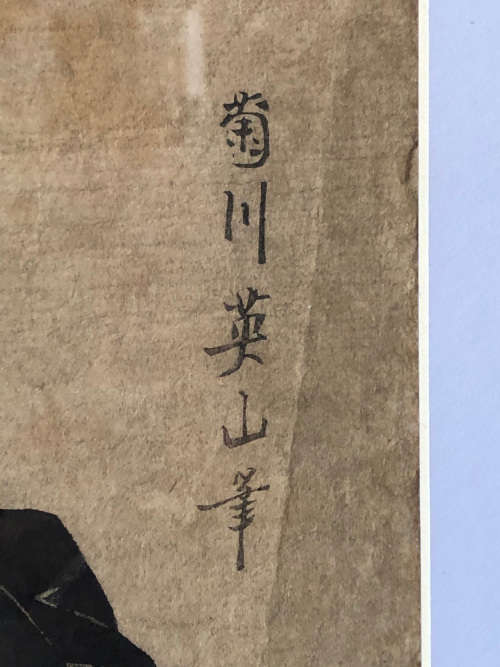 菊川英山筆